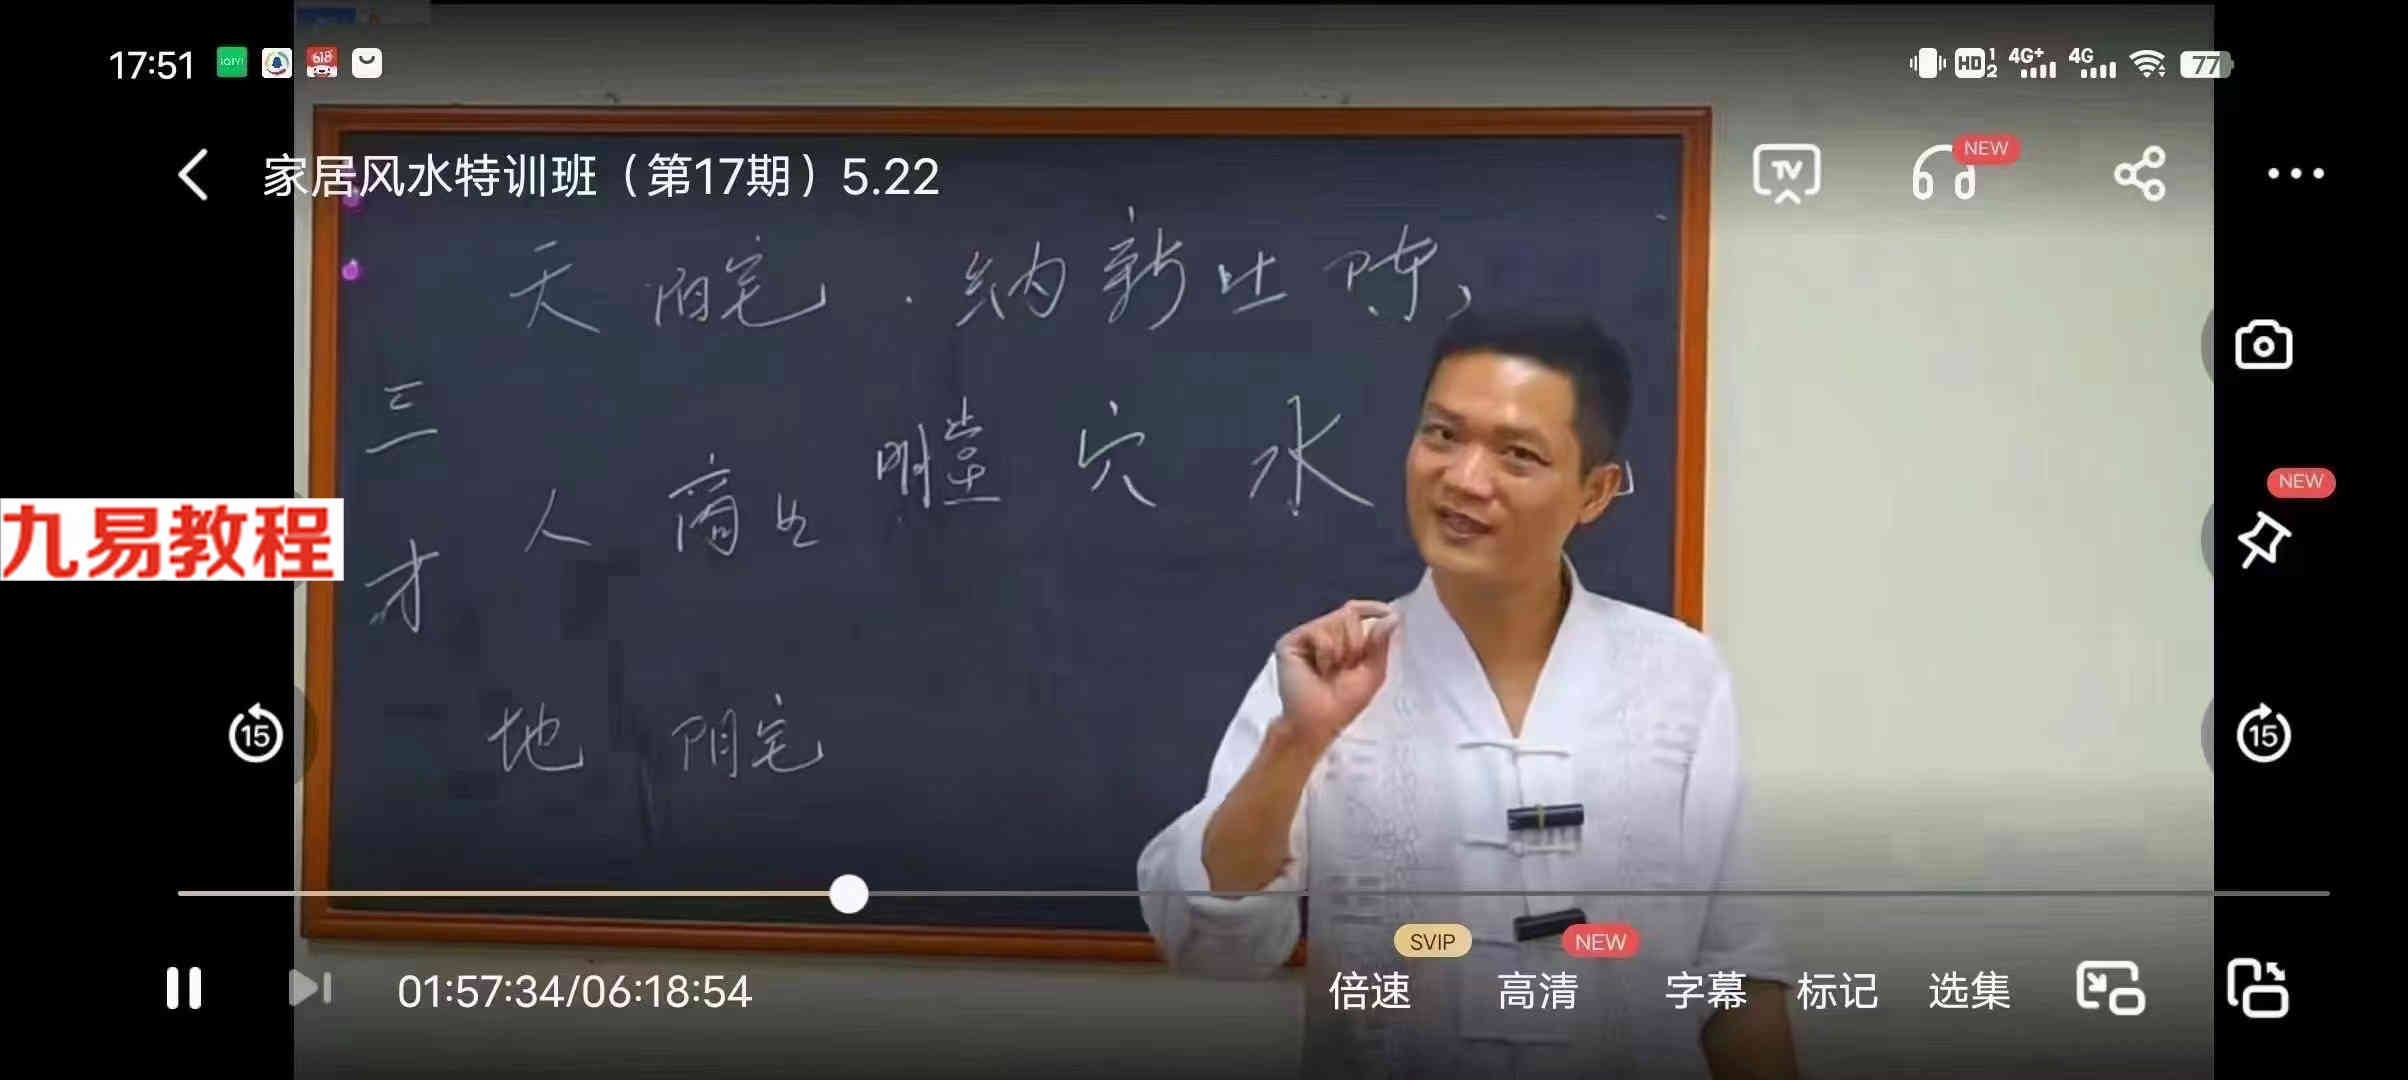 17:51
iQIYI
618
HD 1 2
4G+
4G
77
家居风水特训班（第17期）5.22
TV
NEW
天 阳宅 · 纳新吐陈，
三才
人 商 明堂 穴 水
地 阴宅
九易教程
NEW
15
15
SVIP
NEW
01:57:34/06:18:54
倍速
高清
字幕
标记
选集